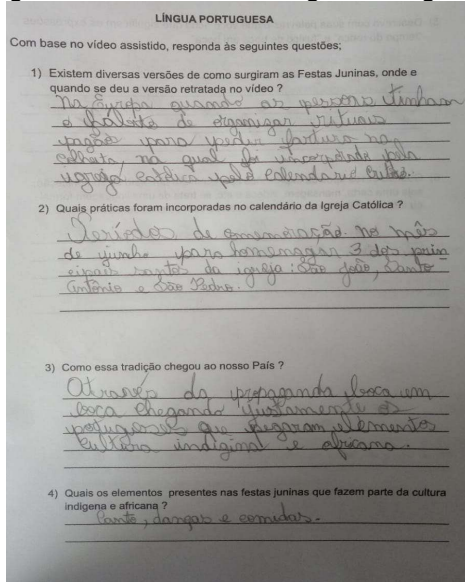 LÍNGUA PORTUGUESA
Com base no vídeo assistido, responda às seguintes questões;
1) Existem diversas versões de como surgiram as Festas Juninas, onde e
quando se deu a versão retratada no vídeo ?
Na Europa quando as pessoas tinham
o hábito de organizar rituais
pagãos para pedir fartura na
colheita, na qual foi incorporada pela
igreja católica pelo calendario
2) Quais práticas foram incorporadas no calendário da Igreja Católica ?
Períodos de comemoração no mês
de junho para homenagear 3 dos prin
cipais santos da igreja: São João, Santo
Antônio e São Pedro.
3) Como essa tradição chegou ao nosso País ?
Através da propaganda boca em
boca chegando justamente os
portugueses que pegaram elementos
cultura e africana.
4) Quais os elementos presentes nas festas juninas que fazem parte da cultura
indígena e africana ?
Canto, danças e comidas.